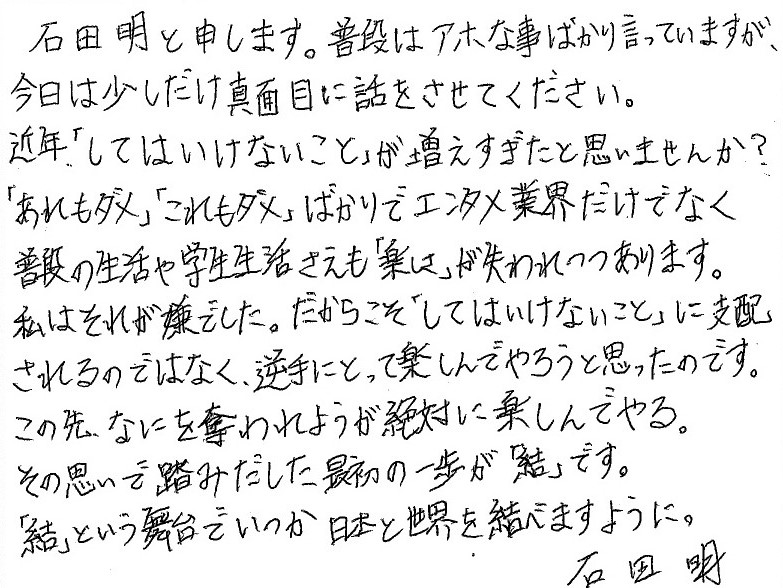 石田明と申します。普段はアホな事ばかり言っていますが、
今日は少しだけ真面目に話をさせてください。
近年、「してはいけないこと」が増えすぎたと思いませんか?
「あれもダメ」「これもダメ」ばかりでエンタメ業界だけでなく
普段の生活や学生生活さえも「楽しさ」が失われつつあります。
私はそれが嫌でした。だからこそ「してはいけないこと」に支配
されるのではなく、逆手にとって楽しんでやろうと思ったのです。
この先、なにを奪われようが絶対に楽しんでやる。
その思いで踏みだした最初の一歩が「結」です。
「結」という舞台でいつか日本と世界を結べますように。
石田明